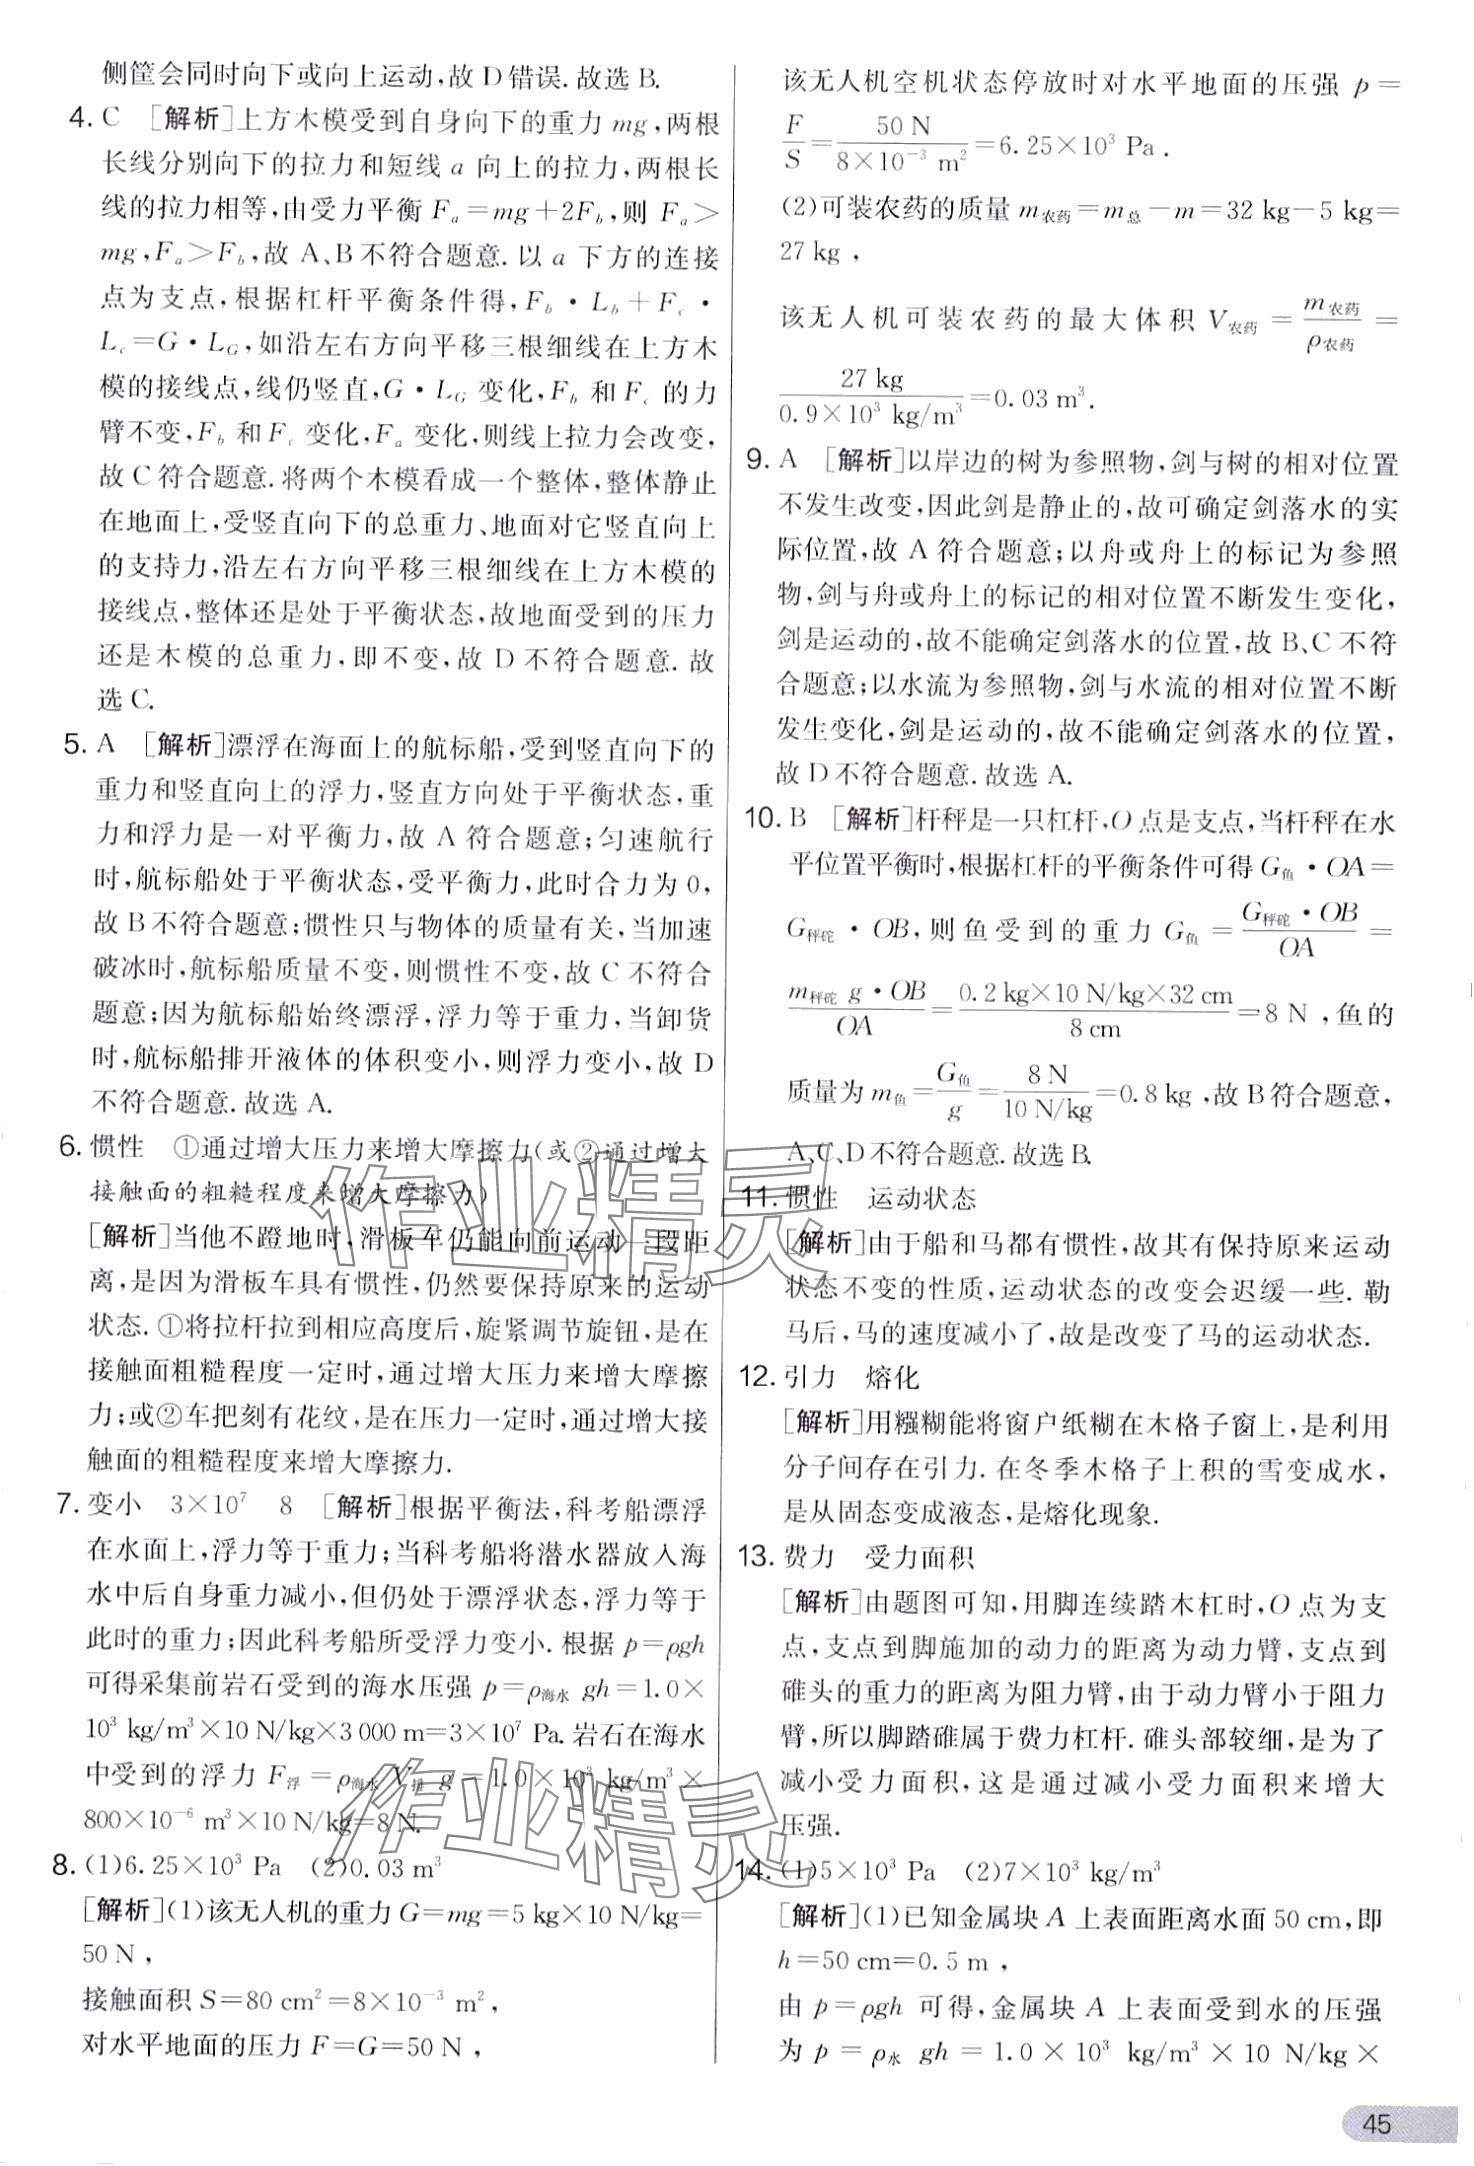 侧筐会同时向下或向上运动,故 D 错误. 故选 B.
4. C [解析]上方木模受到自身向下的重力 mg,两根
长线分别向下的拉力和短线 a 向上的拉力,两根长
线的拉力相等,由受力平衡 Fₐ=mg+2F_b,则 Fₐ>
mg,Fₐ>F_b,故 A、B 不符合题意. 以 a 下方的连接
点为支点,根据杠杆平衡条件得,F_b·L_b+F_c·
L_c=G·L_G,如沿左右方向平移三根细线在上方木
模的接线点,线仍竖直,G·L_G 变化,F_b 和 F_c 的力
臂不变,F_b 和 F_c 变化,Fₐ 变化,则线上拉力会改变,
故 C 符合题意. 将两个木模看成一个整体,整体静止
在地面上,受竖直向下的总重力、地面对它竖直向上
的支持力,沿左右方向平移三根细线在上方木模的
接线点,整体还是处于平衡状态,故地面受到的压力
还是木模的总重力,即不变,故 D 不符合题意. 故
选 C.
5. A [解析]漂浮在海面上的航标船,受到竖直向下的
重力和竖直向上的浮力,竖直方向处于平衡状态,重
力和浮力是一对平衡力,故 A 符合题意;匀速航行
时,航标船处于平衡状态,受平衡力,此时合力为 0,
故 B 不符合题意;惯性只与物体的质量有关,当加速
破冰时,航标船质量不变,则惯性不变,故 C 不符合
题意;因为航标船始终漂浮,浮力等于重力,当卸货
时,航标船排开液体的体积变小,则浮力变小,故 D
不符合题意. 故选 A.
6. 惯性 ①通过增大压力来增大摩擦力(或②通过增大
接触面的粗糙程度来增大摩擦力)
[解析]当他不蹬地时,滑板车仍能向前运动一段距
离,是因为滑板车具有惯性,仍然要保持原来的运动
状态. ①将拉杆拉到相应高度后,旋紧调节旋钮,是在
接触面粗糙程度一定时,通过增大压力来增大摩擦
力;或②车把刻有花纹,是在压力一定时,通过增大接
触面的粗糙程度来增大摩擦力.
7. 变小 3×10⁷ 8 [解析]根据平衡法,科考船漂浮
在水面上,浮力等于重力;当科考船将潜水器放入海
水中后自身重力减小,但仍处于漂浮状态,浮力等于
此时的重力;因此科考船所受浮力变小. 根据 p=ρgh
可得采集前岩石受到的海水压强 p=ρ海水 gh=1.0×
10³ kg/m³×10 N/kg×3 000 m=3×10⁷ Pa. 岩石在海水
中受到的浮力 F浮=ρ海水 V排 g=1.0×10³ kg/m³×
800×10⁻⁶ m³×10 N/kg=8 N.
8. (1)6.25×10³ Pa (2)0.03 m³
[解析](1)该无人机的重力 G=mg=5 kg×10 N/kg=
50 N,
接触面积 S=80 cm²=8×10⁻³ m²,
对水平地面的压力 F=G=50 N,
该无人机空机状态停放时对水平地面的压强 p=
F/S=50 N/(8×10⁻³ m²)=6.25×10³ Pa.
(2)可装农药的质量 m农药=m总-m=32 kg-5 kg=
27 kg,
该无人机可装农药的最大体积 V农药=m农药/ρ农药=
27 kg/(0.9×10³ kg/m³)=0.03 m³.
9. A [解析]以岸边的树为参照物,剑与树的相对位置
不发生改变,因此剑是静止的,故可确定剑落水的实
际位置,故 A 符合题意;以舟或舟上的标记为参照
物,剑与舟或舟上的标记的相对位置不断发生变化,
剑是运动的,故不能确定剑落水的位置,故 B、C 不符
合题意;以水流为参照物,剑与水流的相对位置不断
发生变化,剑是运动的,故不能确定剑落水的位置,
故 D 不符合题意. 故选 A.
10. B [解析]杆秤是一只杠杆,O 点是支点,当杆秤在水
平位置平衡时,根据杠杆的平衡条件可得 G鱼·OA=
G秤砣·OB,则鱼受到的重力 G鱼=G秤砣·OB/OA=
m秤砣 g·OB/OA=0.2 kg×10 N/kg×32 cm/8 cm=8 N,鱼的
质量为 m鱼=G鱼/g=8 N/(10 N/kg)=0.8 kg,故 B 符合题意,
A、C、D 不符合题意. 故选 B.
11. 惯性 运动状态
[解析]由于船和马都有惯性,故其有保持原来运动
状态不变的性质,运动状态的改变会迟缓一些. 勒
马后,马的速度减小了,故是改变了马的运动状态.
12. 引力 熔化
[解析]用糨糊能将窗户纸糊在木格子窗上,是利用
分子间存在引力. 在冬季木格子上积的雪变成水,
是从固态变成液态,是熔化现象.
13. 费力 受力面积
[解析]由题图可知,用脚连续踏木杠时,O 点为支
点,支点到脚施加的动力的距离为动力臂,支点到
碓头的重力的距离为阻力臂,由于动力臂小于阻力
臂,所以脚踏碓属于费力杠杆. 碓头部较细,是为了
减小受力面积,这是通过减小受力面积来增大
压强.
14. (1)5×10³ Pa (2)7×10³ kg/m³
[解析](1)已知金属块 A 上表面距离水面 50 cm,即
h=50 cm=0.5 m,
由 p=ρgh 可得,金属块 A 上表面受到水的压强
为 p=ρ水 gh=1.0×10³ kg/m³×10 N/kg×
45
作业精灵
作业精灵